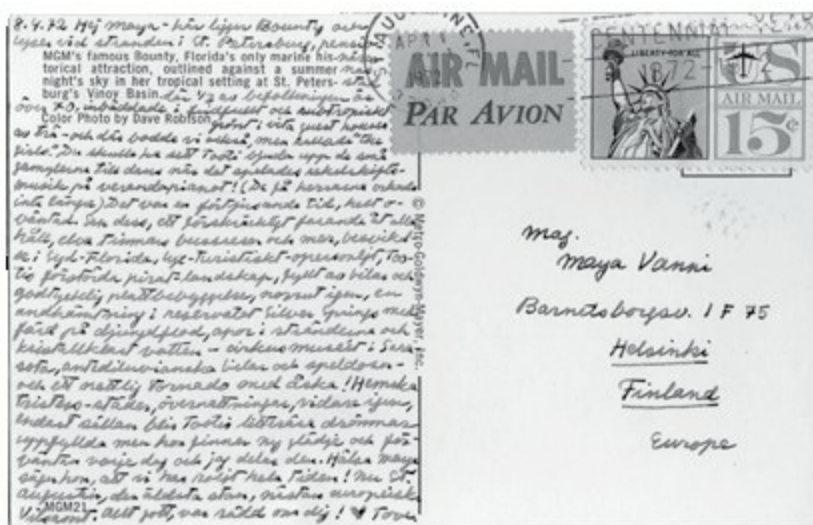 8.4.72 Hej Maya – här ligger Bounty över
lyser vid stranden i St. Petersburg, pensio
MGM's famous Bounty, Florida's only marine his-
torical attraction, outlined against a summer
night's sky in her tropical setting at St. Peters-
burg's Vinoy Basin. där 1/3 av befolkningen är
över 70, inbäddade i
Color Photo by Dave Robison
grönt i vita guest houses
av trä – och där bodde vi också, men kallades "the
girls". Du skulle ha sett Tooti bjuda upp de små
gamlingarna till dans när det spelades sekelskifts-
musik på verandapianot! (De få herrarna orkade
inte längre) Det var en förtjusande tid, helt o-
väntad. Sen dess, ett förskräckligt farande åt alla
håll, elva timmars bussresor och mer, besvik
i Syd-Florida, lyx-turistiskt-opersonligt, Too-
tis förstörda pirat-landskap, fyllt av bilar och
godtycklig plattbebyggelse, norrut igen, en
andhämtning i reservatet Silver Springs med
färd på djungelflod, apor i stränderna och
kristallklart vatten – cirkusmuseet i Sara
sota, antediluvianska bilar och speldosor –
och ett rättlig tornado med åska! Hemska
tristess-städer, övernattningar, vidare igen,
endast sällan blir Tootis litterära drömmar
uppfyllda men hon finner ny glädje och för-
väntan varje dag och jag delar den. Hälsa Maya
säger hon, att vi har roligt hela tiden! Nu St.
Augustin, den äldsta stan, nästan europeisk
MGM21
Allt gott, var rädd om dig! ♥ Tove
© Metro-Goldwyn-Mayer, Inc.
ST AUGUSTINE, FL
APR
1972
AIR MAIL
PAR AVION
CENTENNIAL
1872
LIBERTY FOR ALL
US
AIR MAIL
15¢
Mag.
Maya Vanni
Barnetsborgsv. 1 F 75
Helsinki
Finland
Europe